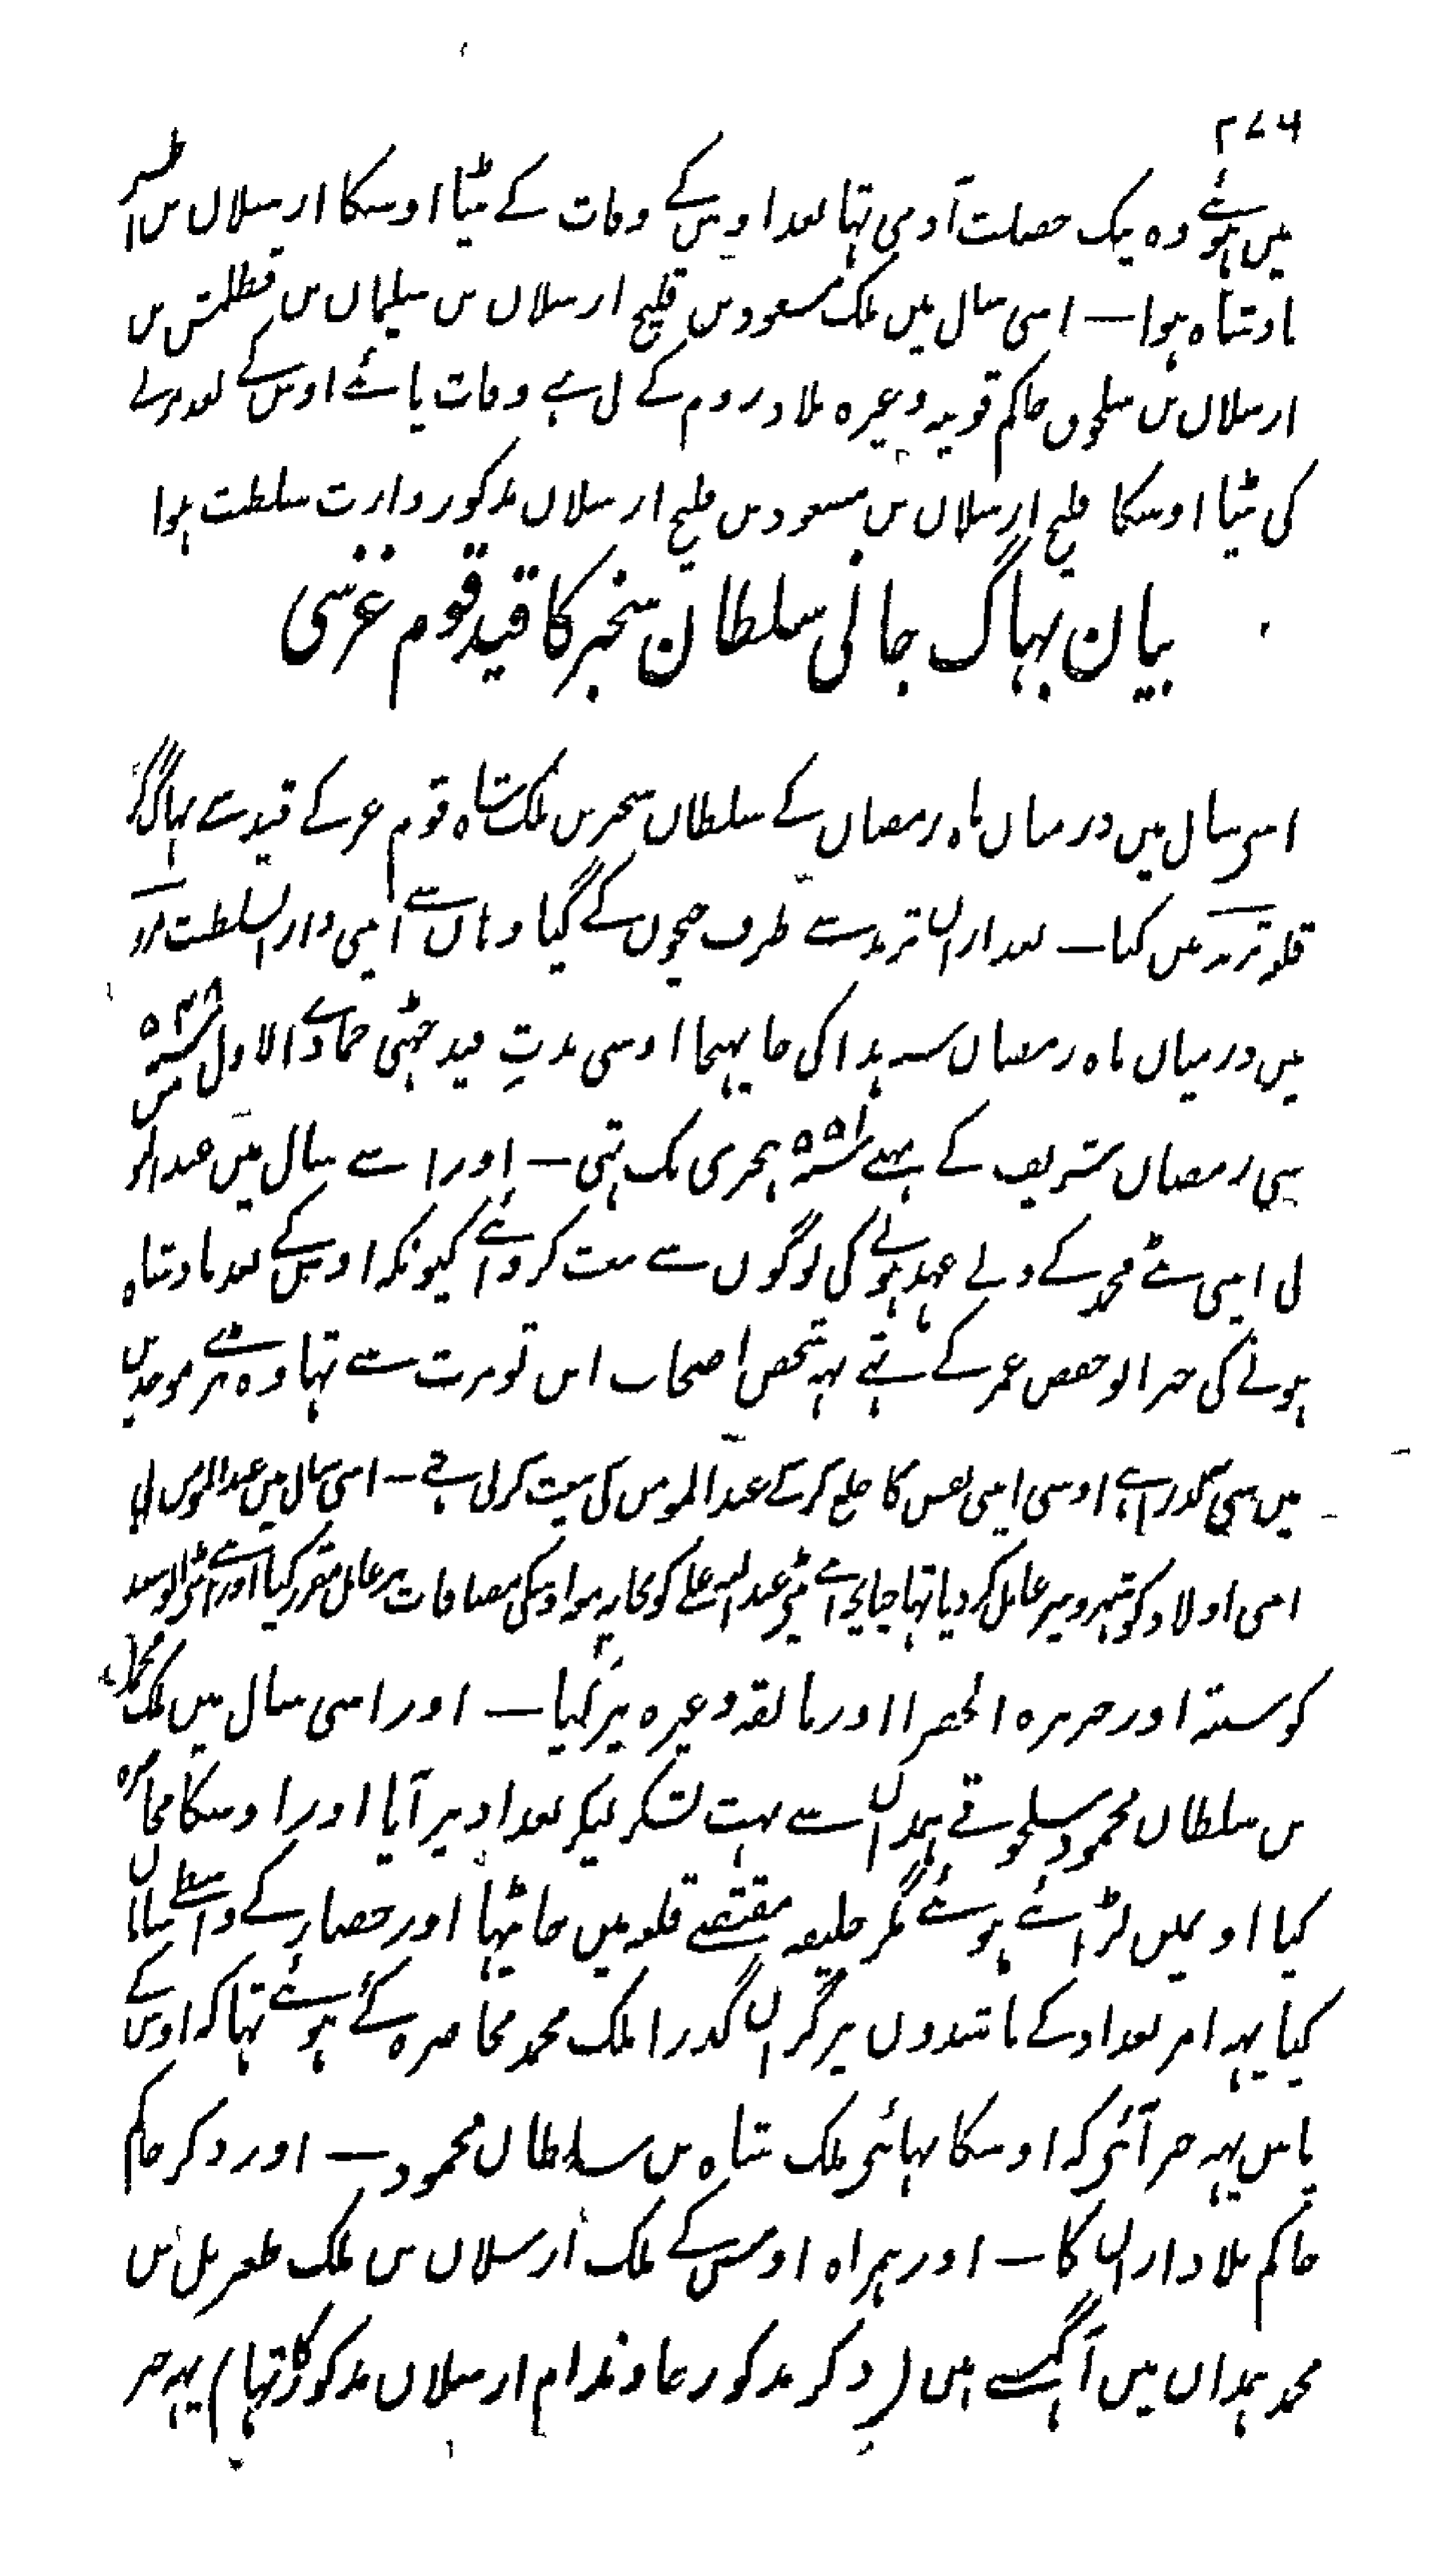 ۲۷۶
میں ہوئے وہ نیک خصلت آدمی تہا بعد اوس کے وفات کے بیٹا اوسکا ارسلان بن اطسز
بادشاہ ہوا — اسی سال میں ملک مسعود بن قلیج ارسلان بن سلیمان بن قطلمش بن
ارسلان بن سلجوق حاکم قونیہ وغیرہ بلاد روم کے نے وفات پائے اوس کے بعد مرنے
کی بیٹا اوسکا قلیج ارسلان بن مسعود بن قلیج ارسلان مذکور وارث سلطنت ہوا
بیان بہاگ جانی سلطان سنجر کا قید قوم غز سی
اسی سال میں درمیان ماہ رمضان کے سلطان سنجر بن ملک شاہ قوم غز کے قید سے بہاگ کر
قلعہ ترمذ میں گیا — بعد ازاں ترمذ سے طرف جیحون کے گیا وہاں سے اپنی دار السلطنت مرو
میں درمیان ماہ رمضان سنہ ہذا کی جا پہنچا اوسی مدتِ قید چھٹی جمادے الاول سنہ ۵۴۸
سی رمضان شریف کے مہینے سنہ ۵۵۱ ہجری تک تہی — اور اسے سال میں عبد المو
نے اپنی بیٹے محمد کے ولے عہد ہونے کی لوگوں سے بیعت کروائے کیونکہ اوس کے بعد بادشاہ
ہونے کی خبر ابو حفص عمر کے تہے یہہ شخص اصحاب ابن تومرت سے تہا وہ بڑے موحدین
میں سی گذرا ہے اوسی اپنی نفس کا خلع کر کے عبد المومن کی بیعت کر لی ہے — اسی سال میں عبد المومن نے
اپنی اولاد کو شہرو پر عامل کر دیا تہا چنانچہ اپنے بیٹے عبد اللہ علے کو بجایہ اور اوسکی مضافات پر عامل مقرر کیا اور اپنے بیٹے ابو سعید
کو سبتہ اور جزیرہ الخضرا اور مالقہ وغیرہ پر کیا — اور اسی سال میں ملک محمد
بن سلطان محمود سلجوقے ہمدان سے بہت لشکر لیکر بغداد پر آیا اور اوسکا محاصرہ
کیا اونمیں لڑائے ہوئے مگر خلیفہ مقتفے قلعہ میں جا بیٹہا اور حصار کے واسطے سامان
کیا یہہ امر بغداد کے باشندوں پر گراں گذرا ملک محمد محاصرہ کئے ہوئے تہا کہ اوس کے
پاس یہہ خبر آئی کہ اوسکا بہائی ملک شاہ بن سلطان محمود — اور دکز حاکم
حاکم بلاد اران کا — اور ہمراہ اوس کے ملک ارسلان بن ملک طغریل بن
محمد ہمدان میں آگہسے ہیں (دکز مذکور خاوند ام ارسلان مذکور کا تہا) یہہ خبر